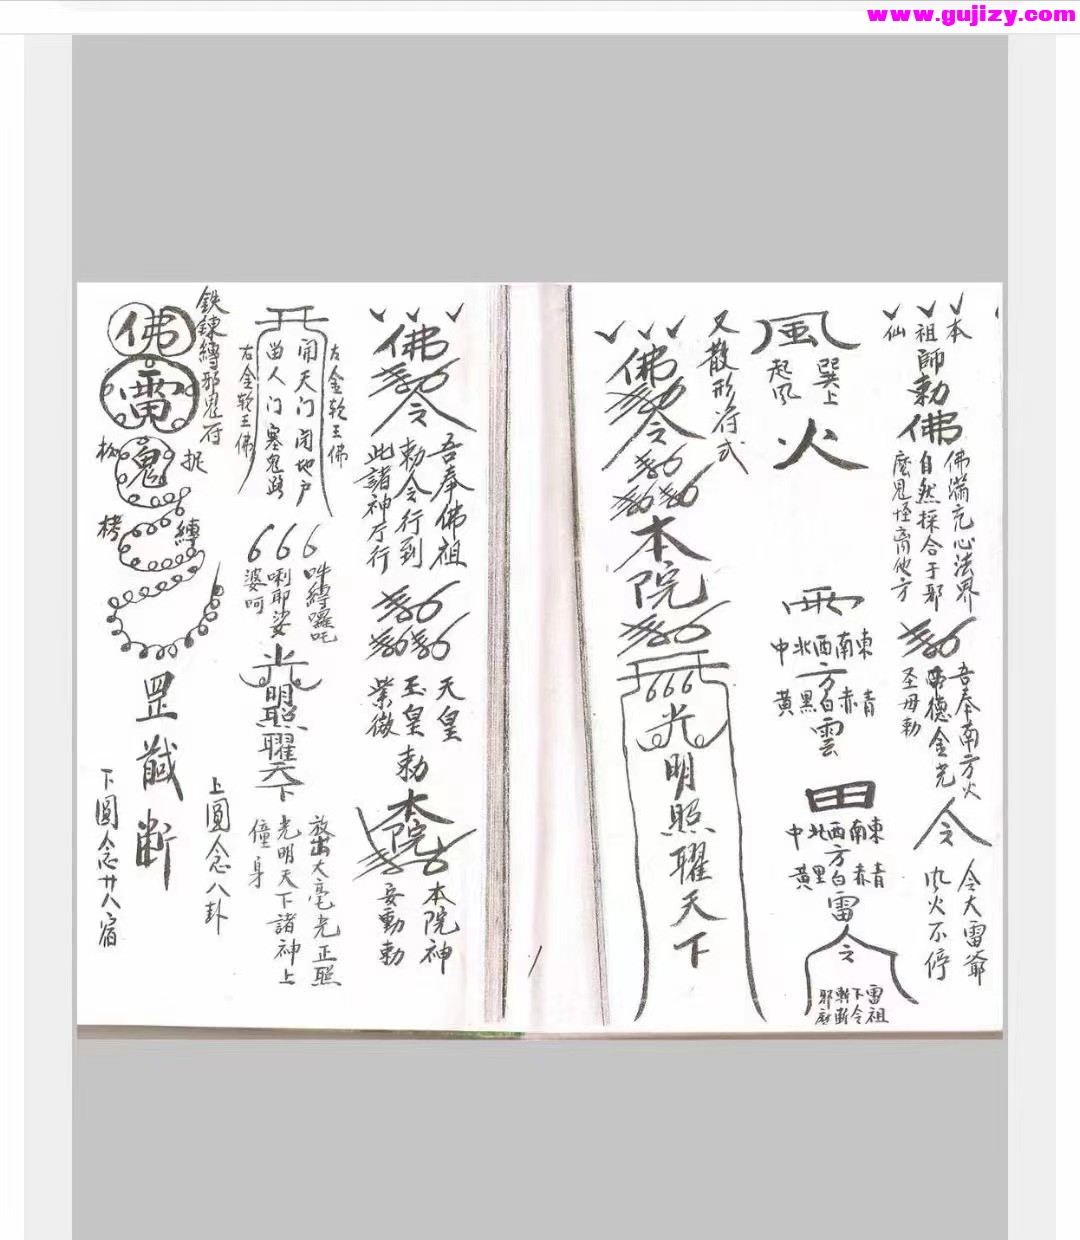 www.gujizy.com
本
祖師勅佛
仙
佛滿充心法界
自然採合于邪
魔鬼怪离他方
吾奉南方火
德金光
圣母勅
令
令大雷爺
风火不停
風
巽上
起风
火
雨
中北西南東
方
黃黑白赤青
雲
田
中北西南東
方
黃黑白赤青
雷
令
雷祖
下令
斬断
邪魔
又散形符式
佛勅令
本院
666
光明照耀天下
佛
令
吾奉佛祖
勅令行到
此諸神厅行
天皇
玉皇
紫微
勅
本院
本院神
妄動勅
左金轮王佛
開天门闭地户
留人门塞鬼路
右金轮王佛
666
吽縛囉吒
唎耶娑
婆呵
光明照耀天下
放出大毫光正照
光明天下諸神上
僮身
鉄鍊縛邪鬼符
佛
雷
鬼
枷
扼
拷
縛
罡
斷
上圓念八卦
下圓念廿八宿